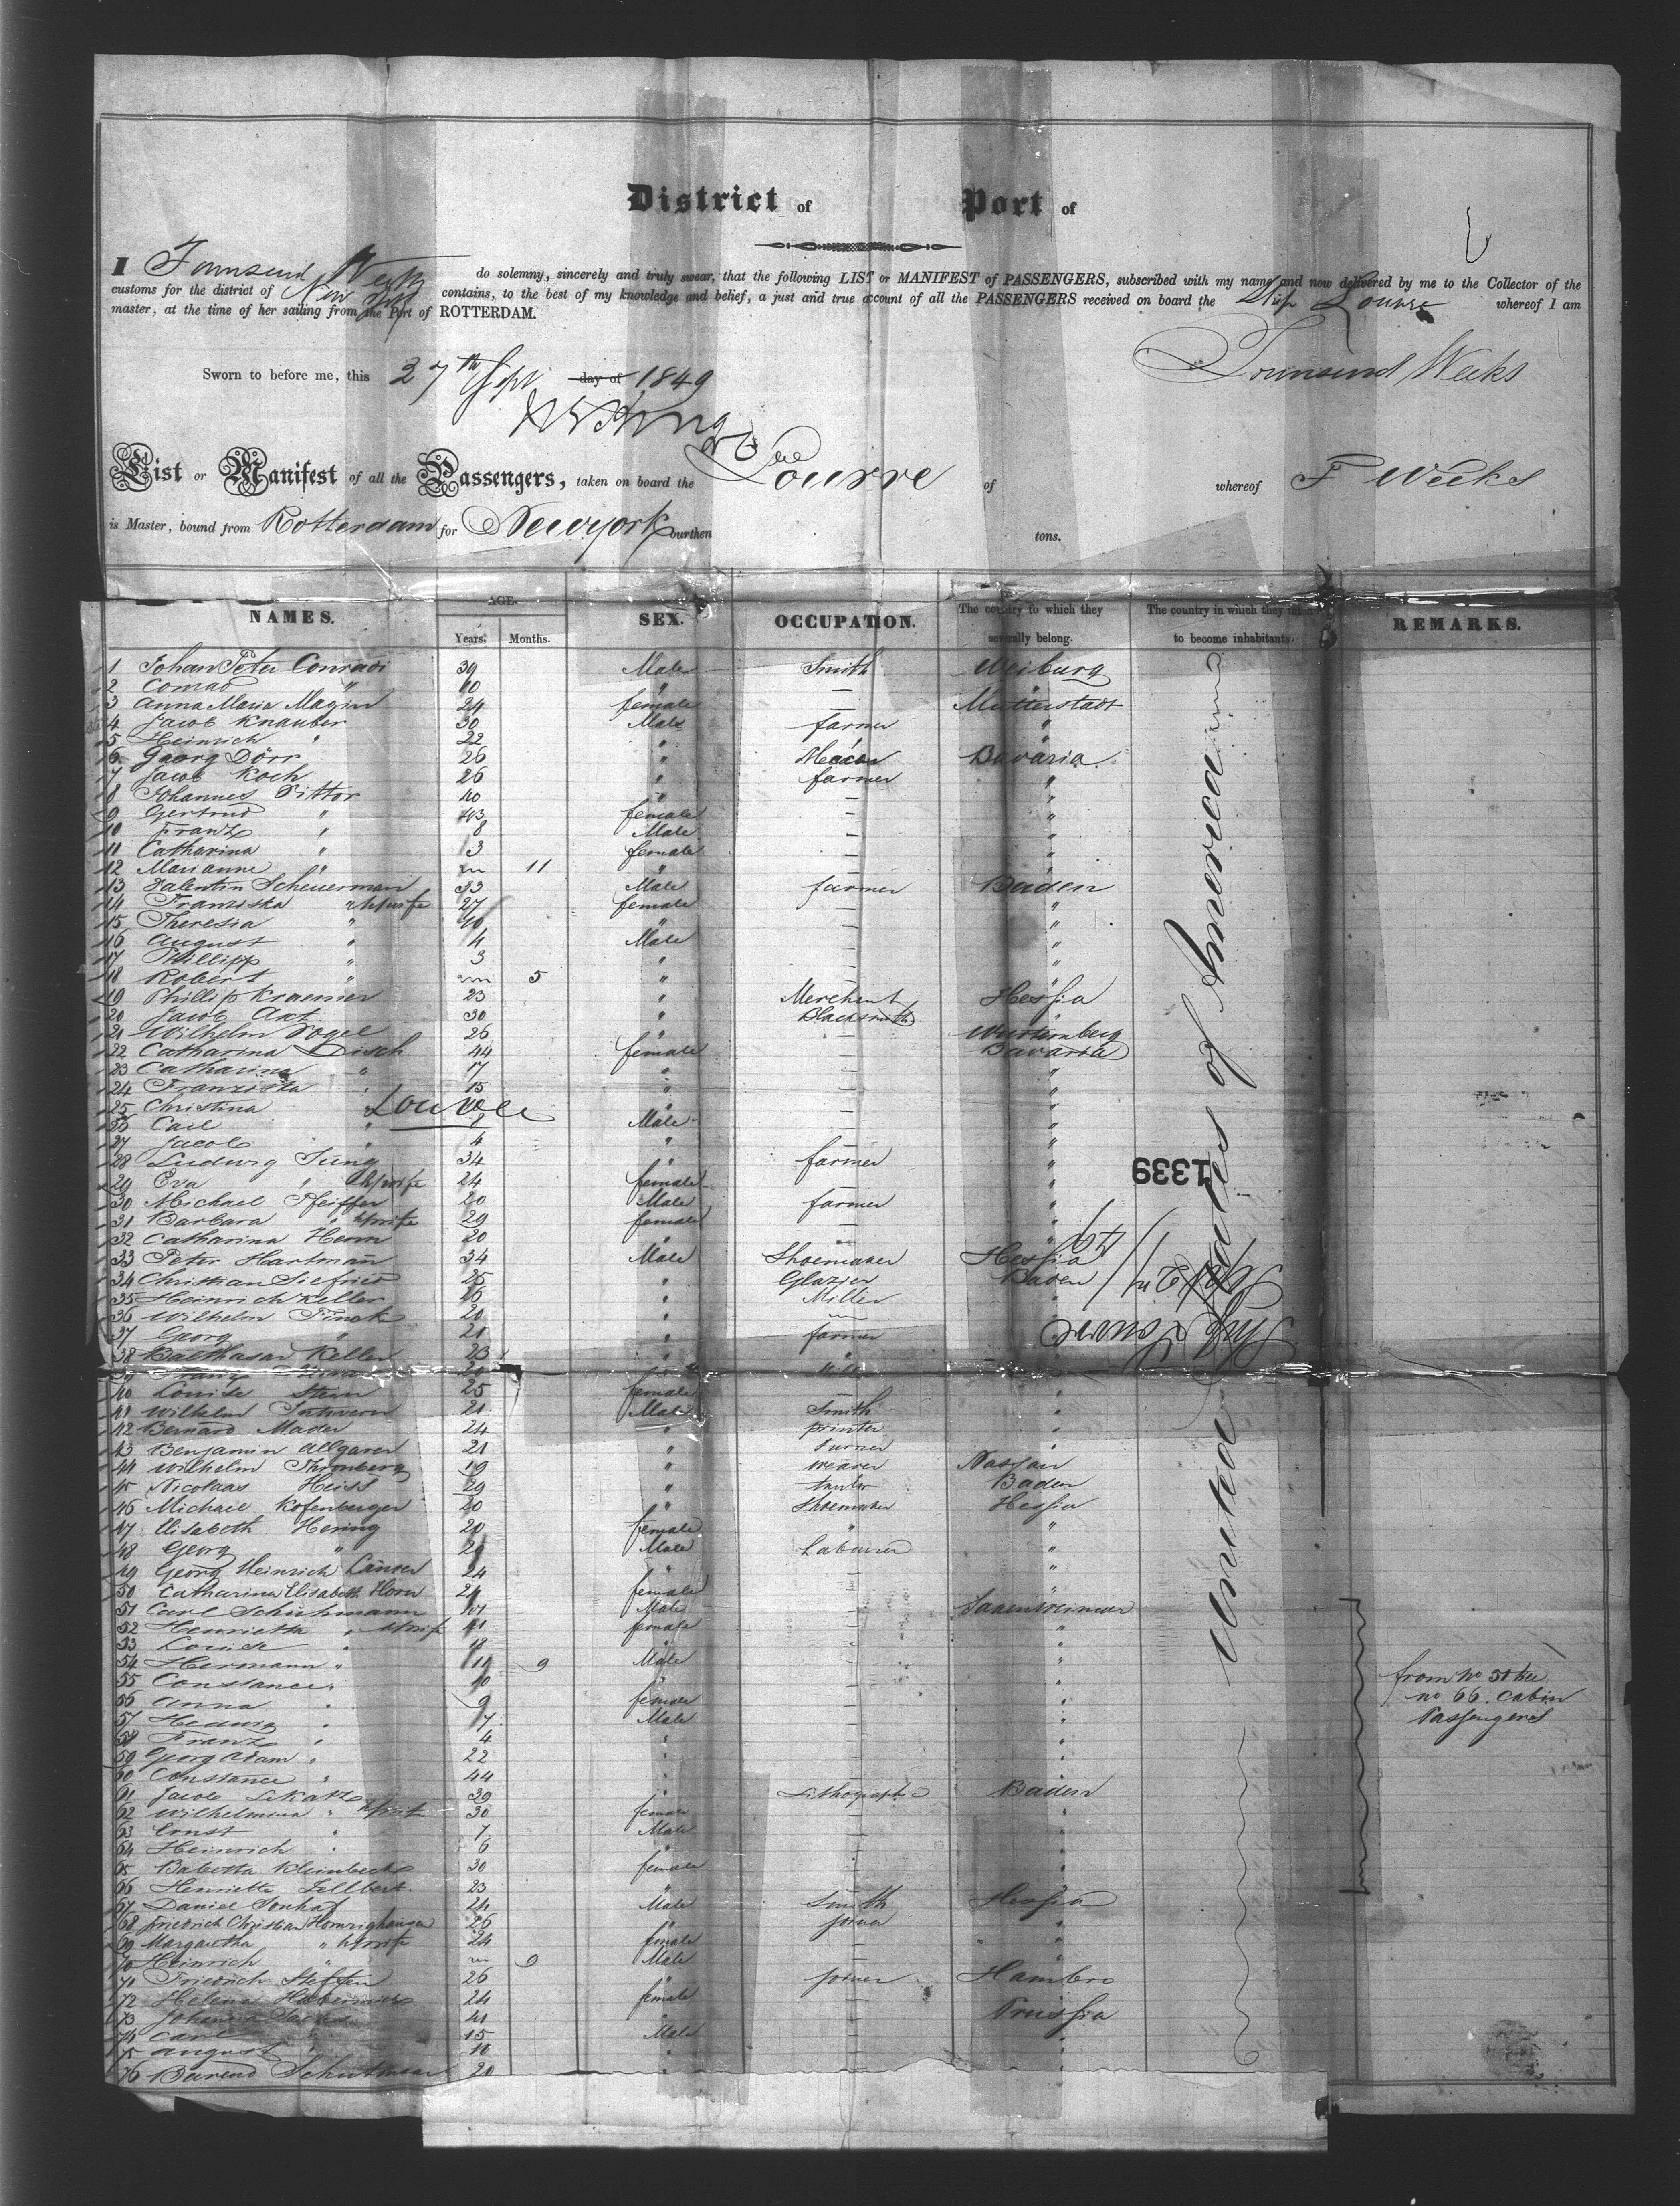 District of Port of
I Townsend Weeks do solemny, sincerely and truly swear, that the following LIST or MANIFEST of PASSENGERS, subscribed with my name and now delivered by me to the Collector of the
customs for the district of New York contains, to the best of my knowledge and belief, a just and true account of all the PASSENGERS received on board the Ship Louvre whereof I am
master, at the time of her sailing from the Port of ROTTERDAM.
Sworn to before me, this 27th Sept day of 1849
Townsend Weeks
List or Manifest of all the Passengers, taken on board the Louvre of whereof F Weeks
is Master, bound from Rotterdam for Newyork burthen tons.
NAMES. AGE. Years. Months. SEX. OCCUPATION. The country to which they severally belong. The country in which they to become inhabitants. REMARKS.
1 Johan Peter Conradi 39 Male Smith Weiburg
2 Conrad " 10 " —
3 Anna Maria Magin 24 female — Mutterstadt
4 Jacob Knauber 30 Male farmer "
5 Heinrich " 22 " "
6 Georg Dörr 26 " Bavaria
7 Jacob Koch 26 " farmer "
8 Johannes 40 " — "
9 Gertrud " 43 female — "
10 Franz " 8 Male — "
11 Catharina " 3 female — "
12 Marianne " 11 " — "
13 Valentin Scheuerman 33 Male farmer Baden
14 Franziska " wife 27 female — "
15 Theresia " 10 " — "
16 August " 4 Male — "
17 Phillipp " 3 " — "
18 Robert " 5 " — "
19 Phillip Kraemer 23 " Merchent Hessia
20 Jacob Axt 30 " Blacksmith "
21 Wilhelm Vogel 26 " — Wurtemberg
22 Catharina Disch 44 female — Bavaria
23 Catharina " 17 " — "
24 Franziska " 15 " — "
25 Christina " " — "
Louvre
26 Carl " 8 Male — "
27 Jacob " 4 " — "
28 Ludwig Jung 34 " farmer "
29 Eva " wife 24 female — "
30 Michael Pfeiffer 20 Male farmer "
31 Barbara " wife 29 female — "
32 Catharina Herm 20 " — "
33 Peter Hartmann 34 Male Shoemaker Hessia
34 Christian Siefried 25 " Glazier Baden
35 Heinrich Keller 26 " Miller "
36 Wilhelm Finck 20 " — "
37 Georg " 21 " farmer "
38 Balthasar Keller 23 " " "
39 Franz 20
40 Louise Stein 25 female — "
41 Wilhelm 21 Male Smith "
42 Bernard Mader 24 " printer "
43 Benjamin Allgarer 21 " Turner "
44 Wilhelm Thronberg 19 " weaver Nassau
45 Nicolaas Heiss 29 " Baden
46 Michael Kofenberger 20 " Shoemaker Hessia
47 Elisabeth Hering 20 female " "
48 Georg " 20 Male Labourer "
49 Georg Heinrich 24 " — "
50 Catharina Elisabeth Horn 24 female — "
51 Carl Schuhmann Male —
52 Henrietta " wife 41 female — "
53 Louise " 18 " — "
54 Hermann " 11 9 Male — "
55 Constance " 10 " — "
56 Anna " 9 female — "
57 Hedwig " 7 Male — "
58 Franz " 4 " — "
59 Georg Adam " 22 " — "
60 Constance " 44 " — "
61 Jacob 39 " Lithographie Baden
62 Wilhelmina " wife 30 female — "
63 Ernst " 7 Male — "
64 Heinrich " 6 " — "
65 Babetta Kleinbeck 30 female — "
66 Henriette Sellbert 23 " — "
67 Daniel 24 Male Smith Hessia
68 Friedrich Christian Hornrighausen 26 " joiner "
69 Margaretha " wife 24 female "
70 Heinrich " 9 Male — "
71 Friedrich Steffen 26 " joiner Hambro
72 Helena 24 female —
73 Johanna 41 " Prussia
74 Carl 15 Male "
75 August " 10 " "
76 Barend 20 " "
United States of America
from No 51 the
no 66. Cabin
Passengers
1339
Ship Louvre
Sept 27/49